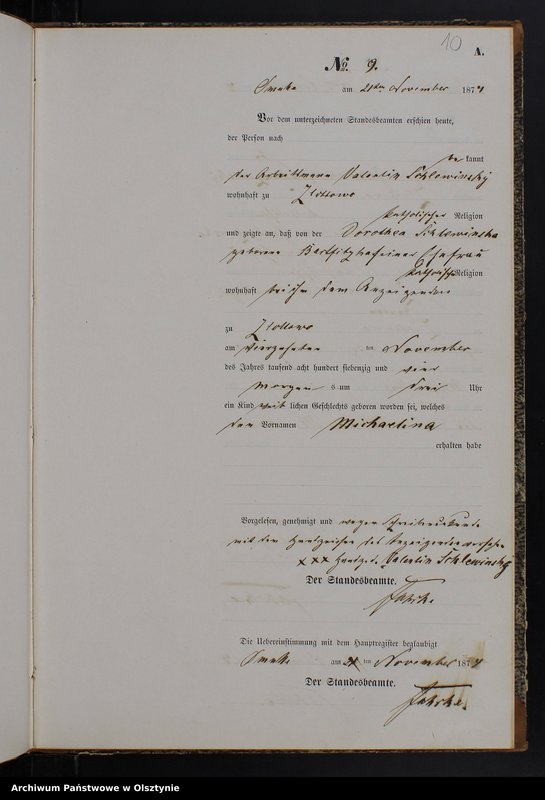 10
A.
No. 9.
am 21ten November 1874
Vor dem unterzeichneten Standesbeamten erschien heute,
der Person nach
be kannt
der Arbeitsmann Valentin Schlewinsky
wohnhaft zu Zlottowo
katholischer Religion
und zeigte an, daß von der Dorothea Schlewinska
geborene Ehefrau
katholischer Religion
wohnhaft bei ihm dem Anzeigenden
zu Zlottowo
am vierzehnten ten November
des Jahres tausend acht hundert siebenzig und vier
Morgen s um drei Uhr
ein Kind weib lichen Geschlechts geboren worden sei, welches
den Vornamen Michaelina
erhalten habe
Vorgelesen, genehmigt und wegen
mit dem Handzeichen des Anzeigenden versehen
xxx Handz. Valentin Schlewinsky
Der Standesbeamte.
Die Uebereinstimmung mit dem Hauptregister beglaubigt
am 21 ten November 1874
Der Standesbeamte.
Archiwum Państwowe w Olsztynie